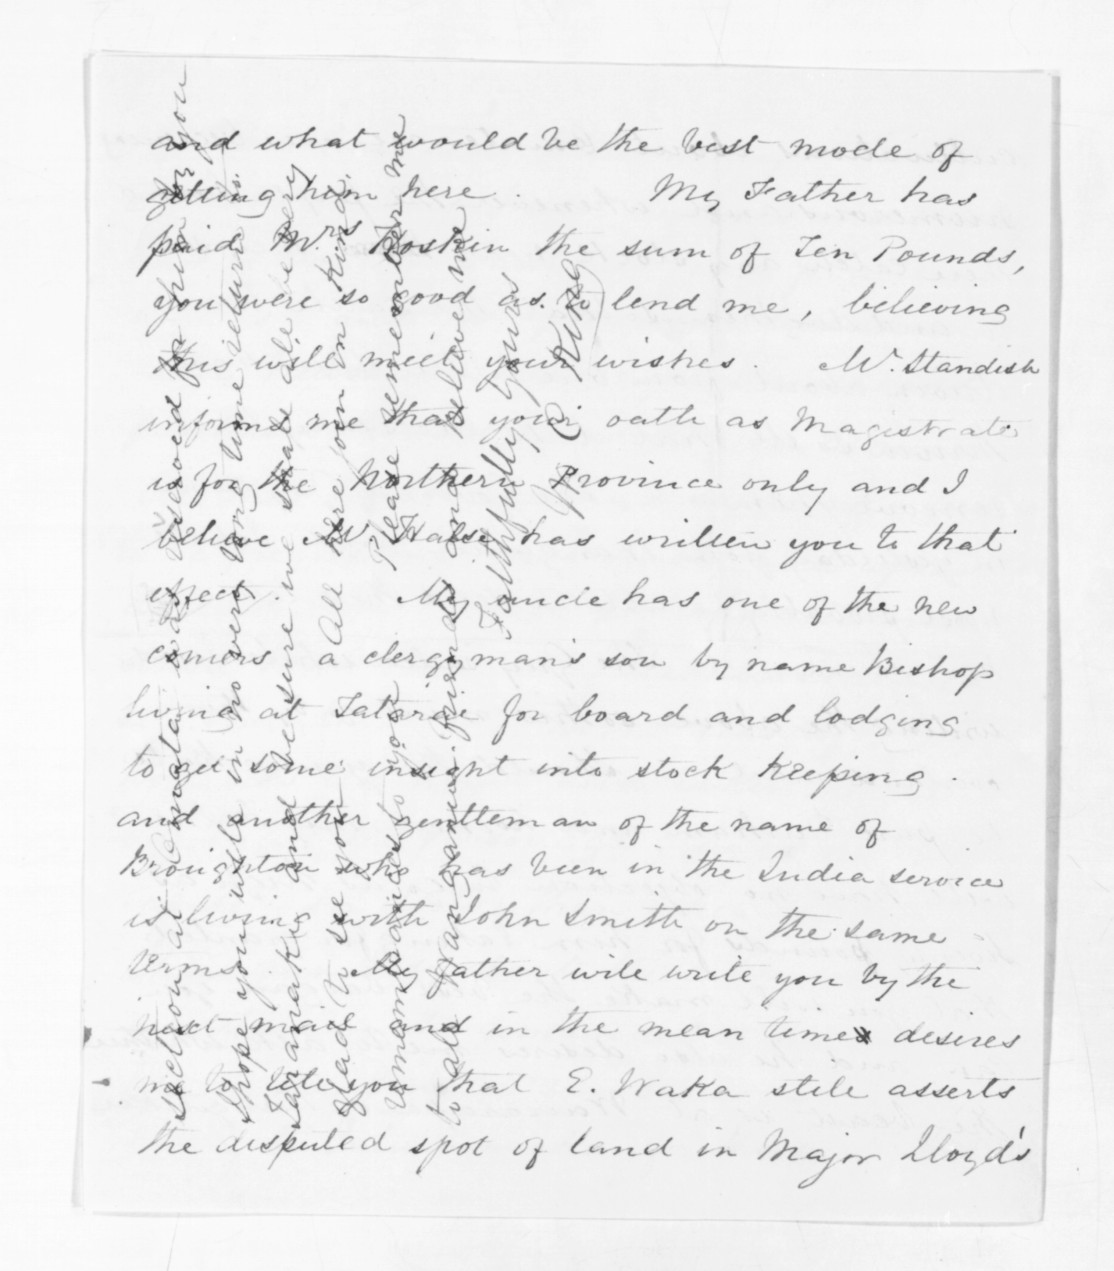 and what would be the best mode of
getting him here. My Father has
paid Mrs Hoskin the sum of Ten Pounds,
you were so good as to lend me, believing
this will meet your wishes. Mr. Standish
informs me that your oath as Magistrate
is for the Northern Province only and I
believe Mr Halse has written you to that
effect. My uncle has one of the new
comers a clergyman's son by name Bishop
living at Tataraie for board and lodging
to get some insight into stock keeping.
and another gentleman of the name of
Broughton who has been in the India service
is living with John Smith on the same
terms. My Father will write you by the
next mail and in the mean time desires
me to tell you that E. Waka still asserts
the disputed spot of land in Major Lloyd's
section at is reserved for him you
Hope you will in no very long time return to
Taranaki and be sure we shall all be very
glad to see you. All here join in kind
remembrances to you Please remember me
to all Wanganui friends and believe me
Faithfully Yours
W C King